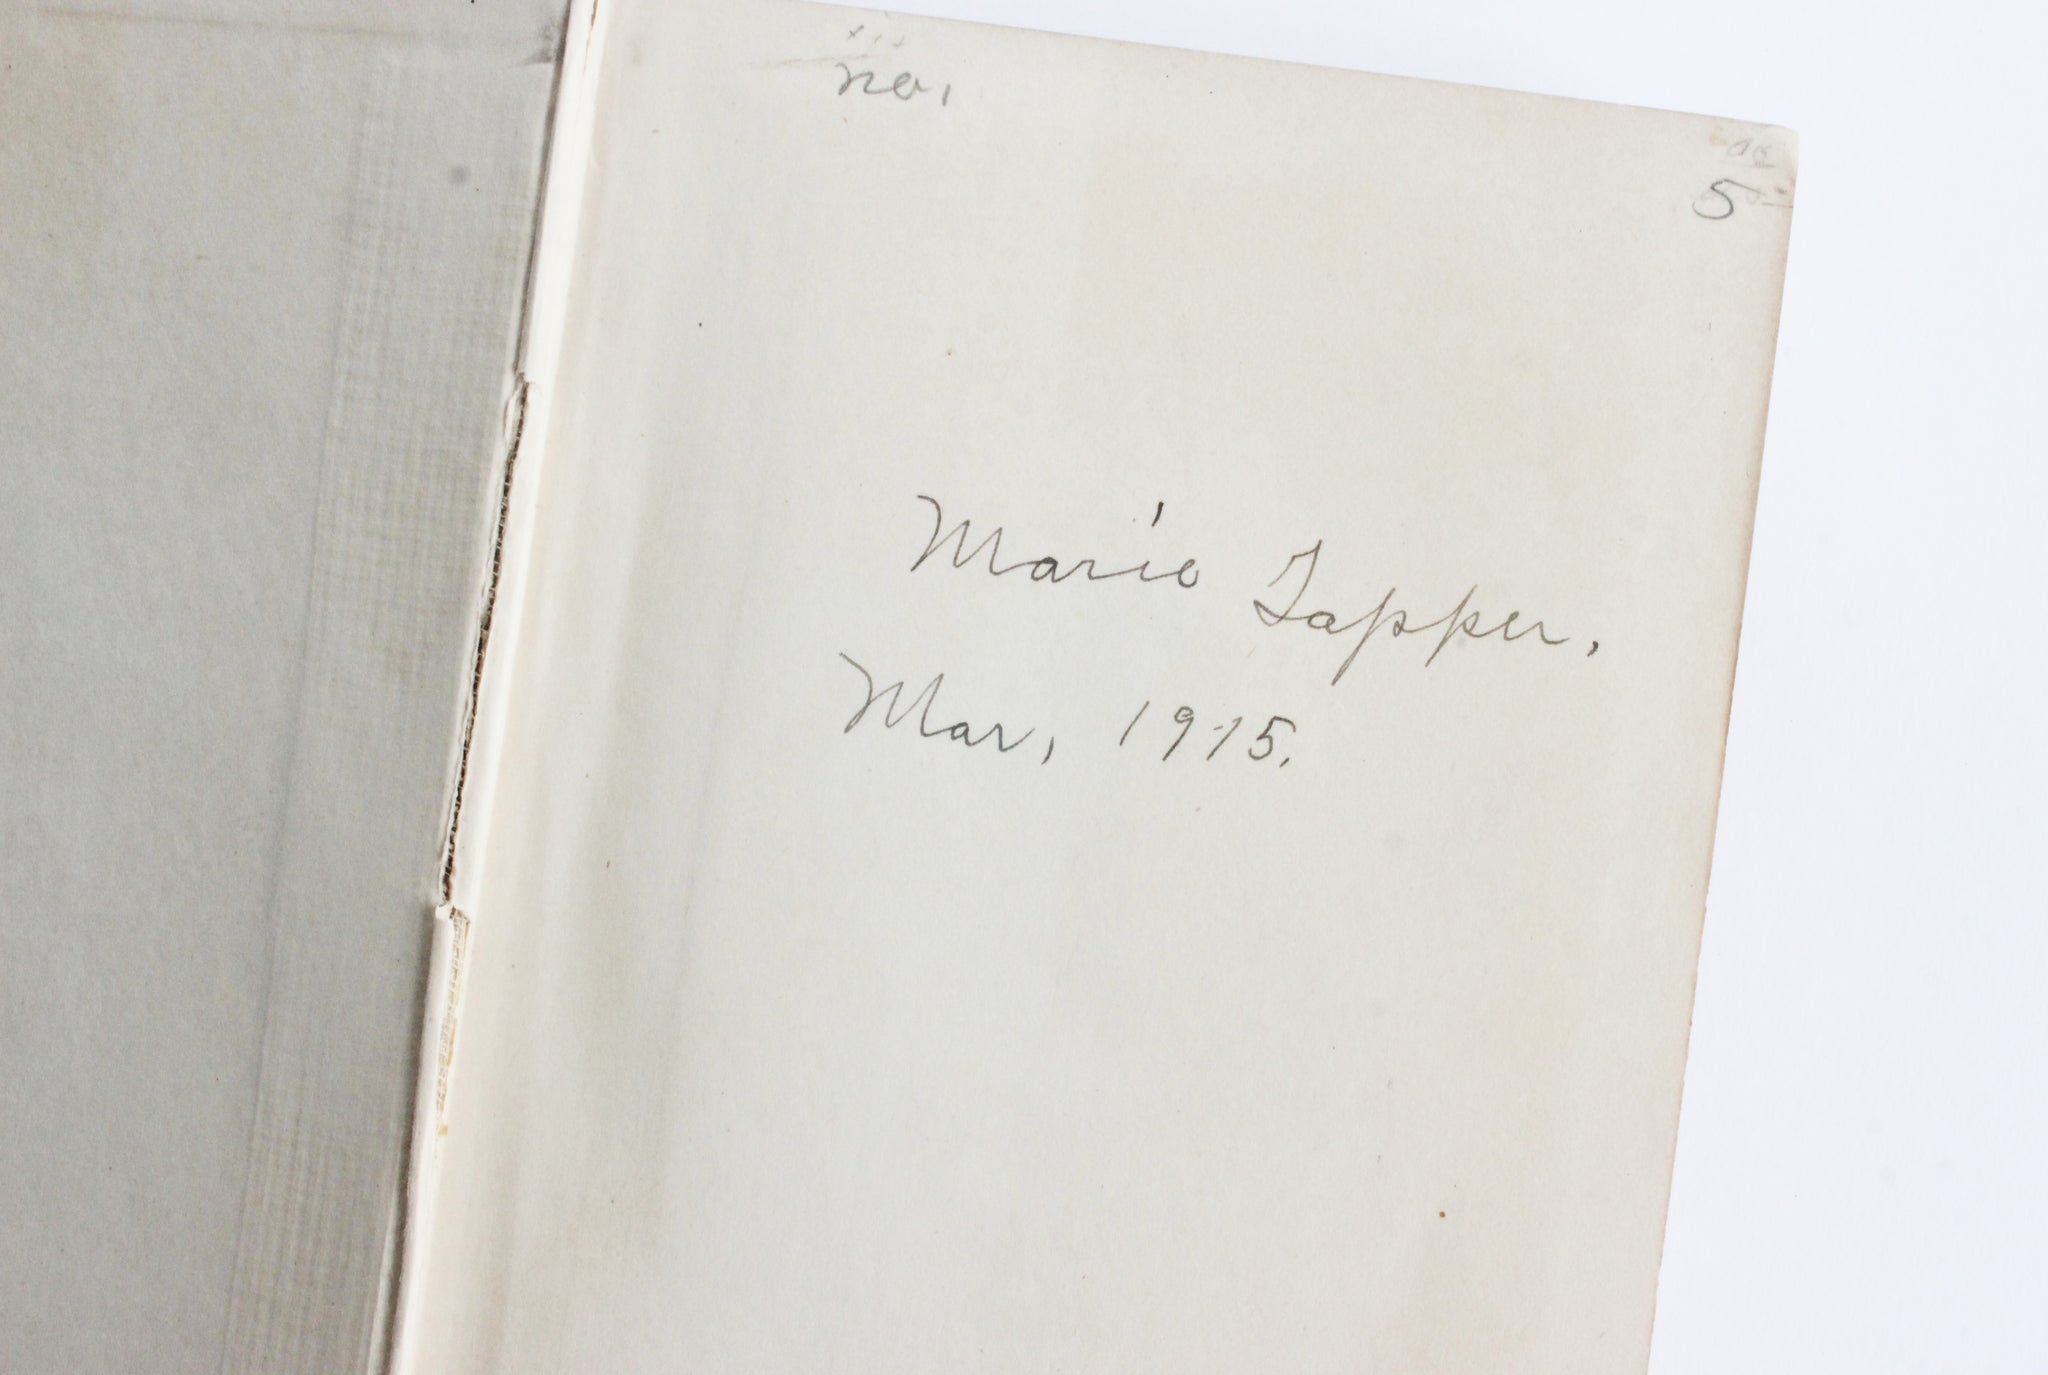 no.
5
Marie Tapper.
Mar, 1915.